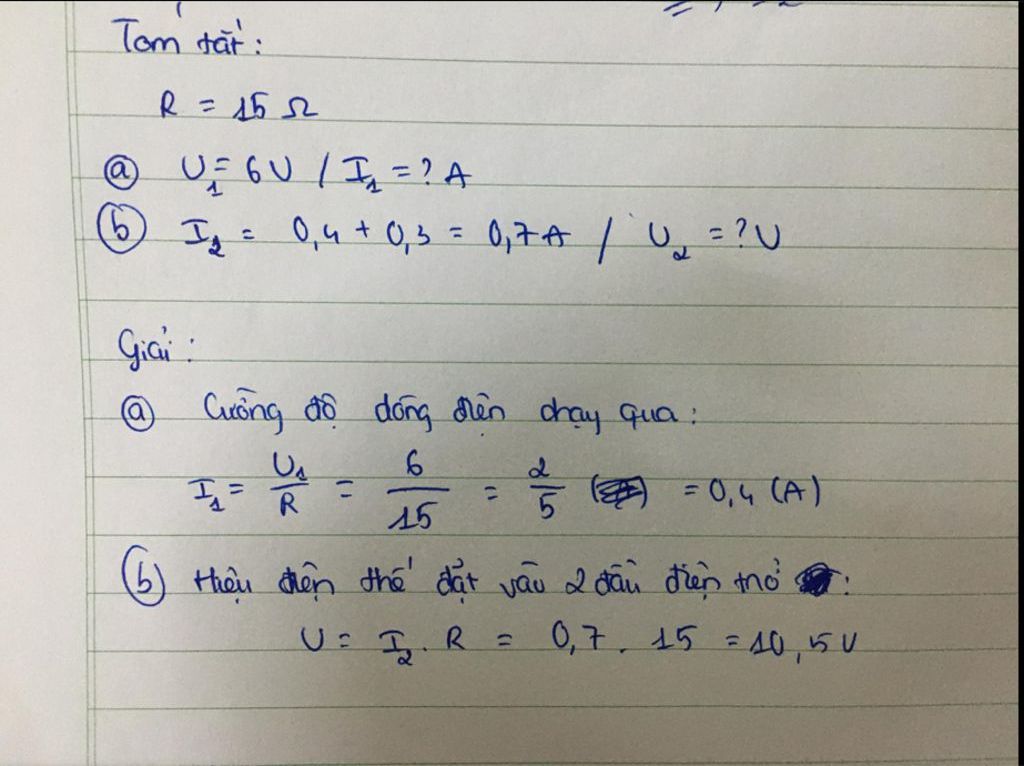 Tóm tắt:
R = 15 Ω
ⓐ U₁ = 6V / I₁ = ? A
ⓑ I₂ = 0,4 + 0,3 = 0,7A / U₂ = ? V
Giải:
ⓐ Cường độ dòng điện chạy qua:
I₁ = U₁/R = 6/15 = 2/5 = 0,4 (A)
ⓑ Hiệu điện thế đặt vào 2 đầu điện trở :
U = I₂ . R = 0,7 . 15 = 10,5 V